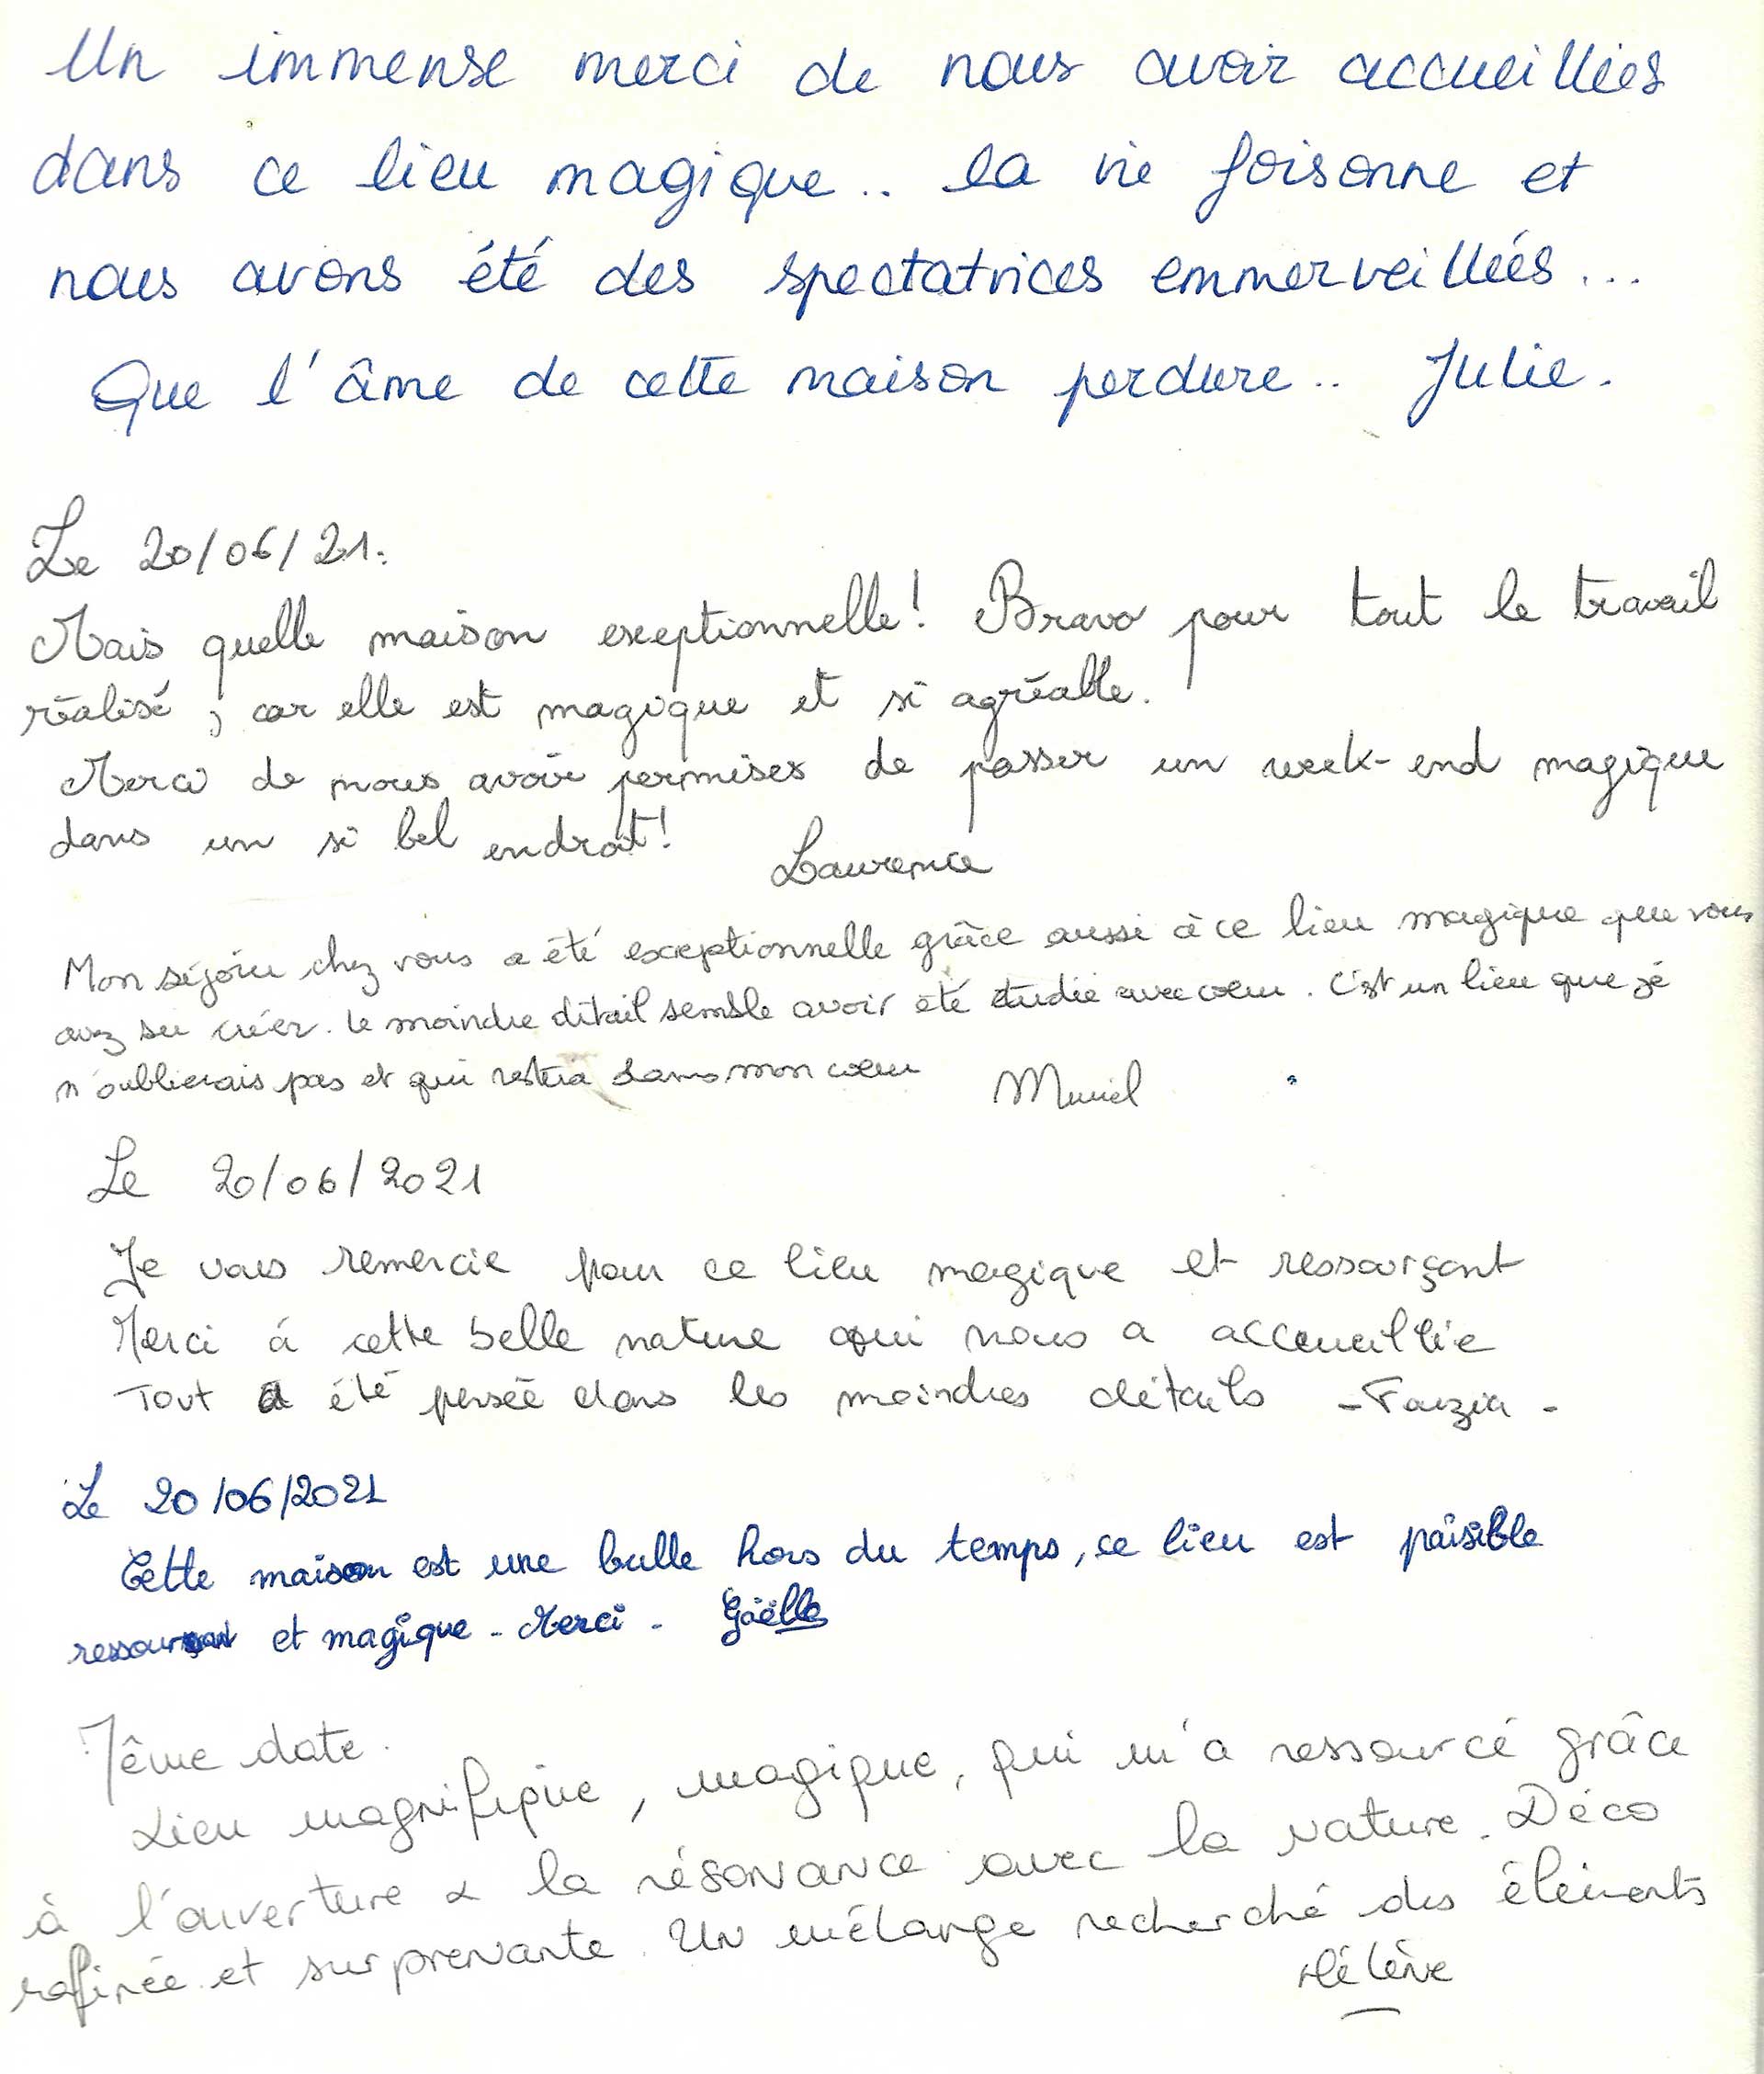 Un immense merci de nous avoir accueillies
dans ce lieu magique.. la vie foisonne et
nous avons été des spectatrices emmerveillées...
Que l'âme de cette maison perdure.. Julie.
Le 20/06/21.
Mais quelle maison exeptionnelle! Bravo pour tout le travail
réalisé, car elle est magique et si agréable.
Merci de nous avoir permises de passer un week-end magique
dans un si bel endroit!
Laurence
Mon séjour chez vous a été exceptionnelle grâce aussi à ce lieu magique que vous
avez su créer. Le moindre détail semble avoir été étudié avec coeur. C'est un lieu que je
n'oublierais pas et qui restera dans mon coeur Muriel
Le 20/06/2021
Je vous remercie pour ce lieu magique et ressourçant
Merci à cette belle nature qui nous a acceuillie
Tout a été pensée dans les moindres détails - Fauzia -
Le 20/06/2021
Cette maison est une bulle hors du temps, ce lieu est paisible
ressourçant et magique - Merci - Gaëlle
Même date.
Lieu magnifique, magique, qui m'a ressourcé grâce
à l'ouverture & la résonance avec la nature. Déco
raffinée et surprenante. Un mélange recherché des éléments
Hélène